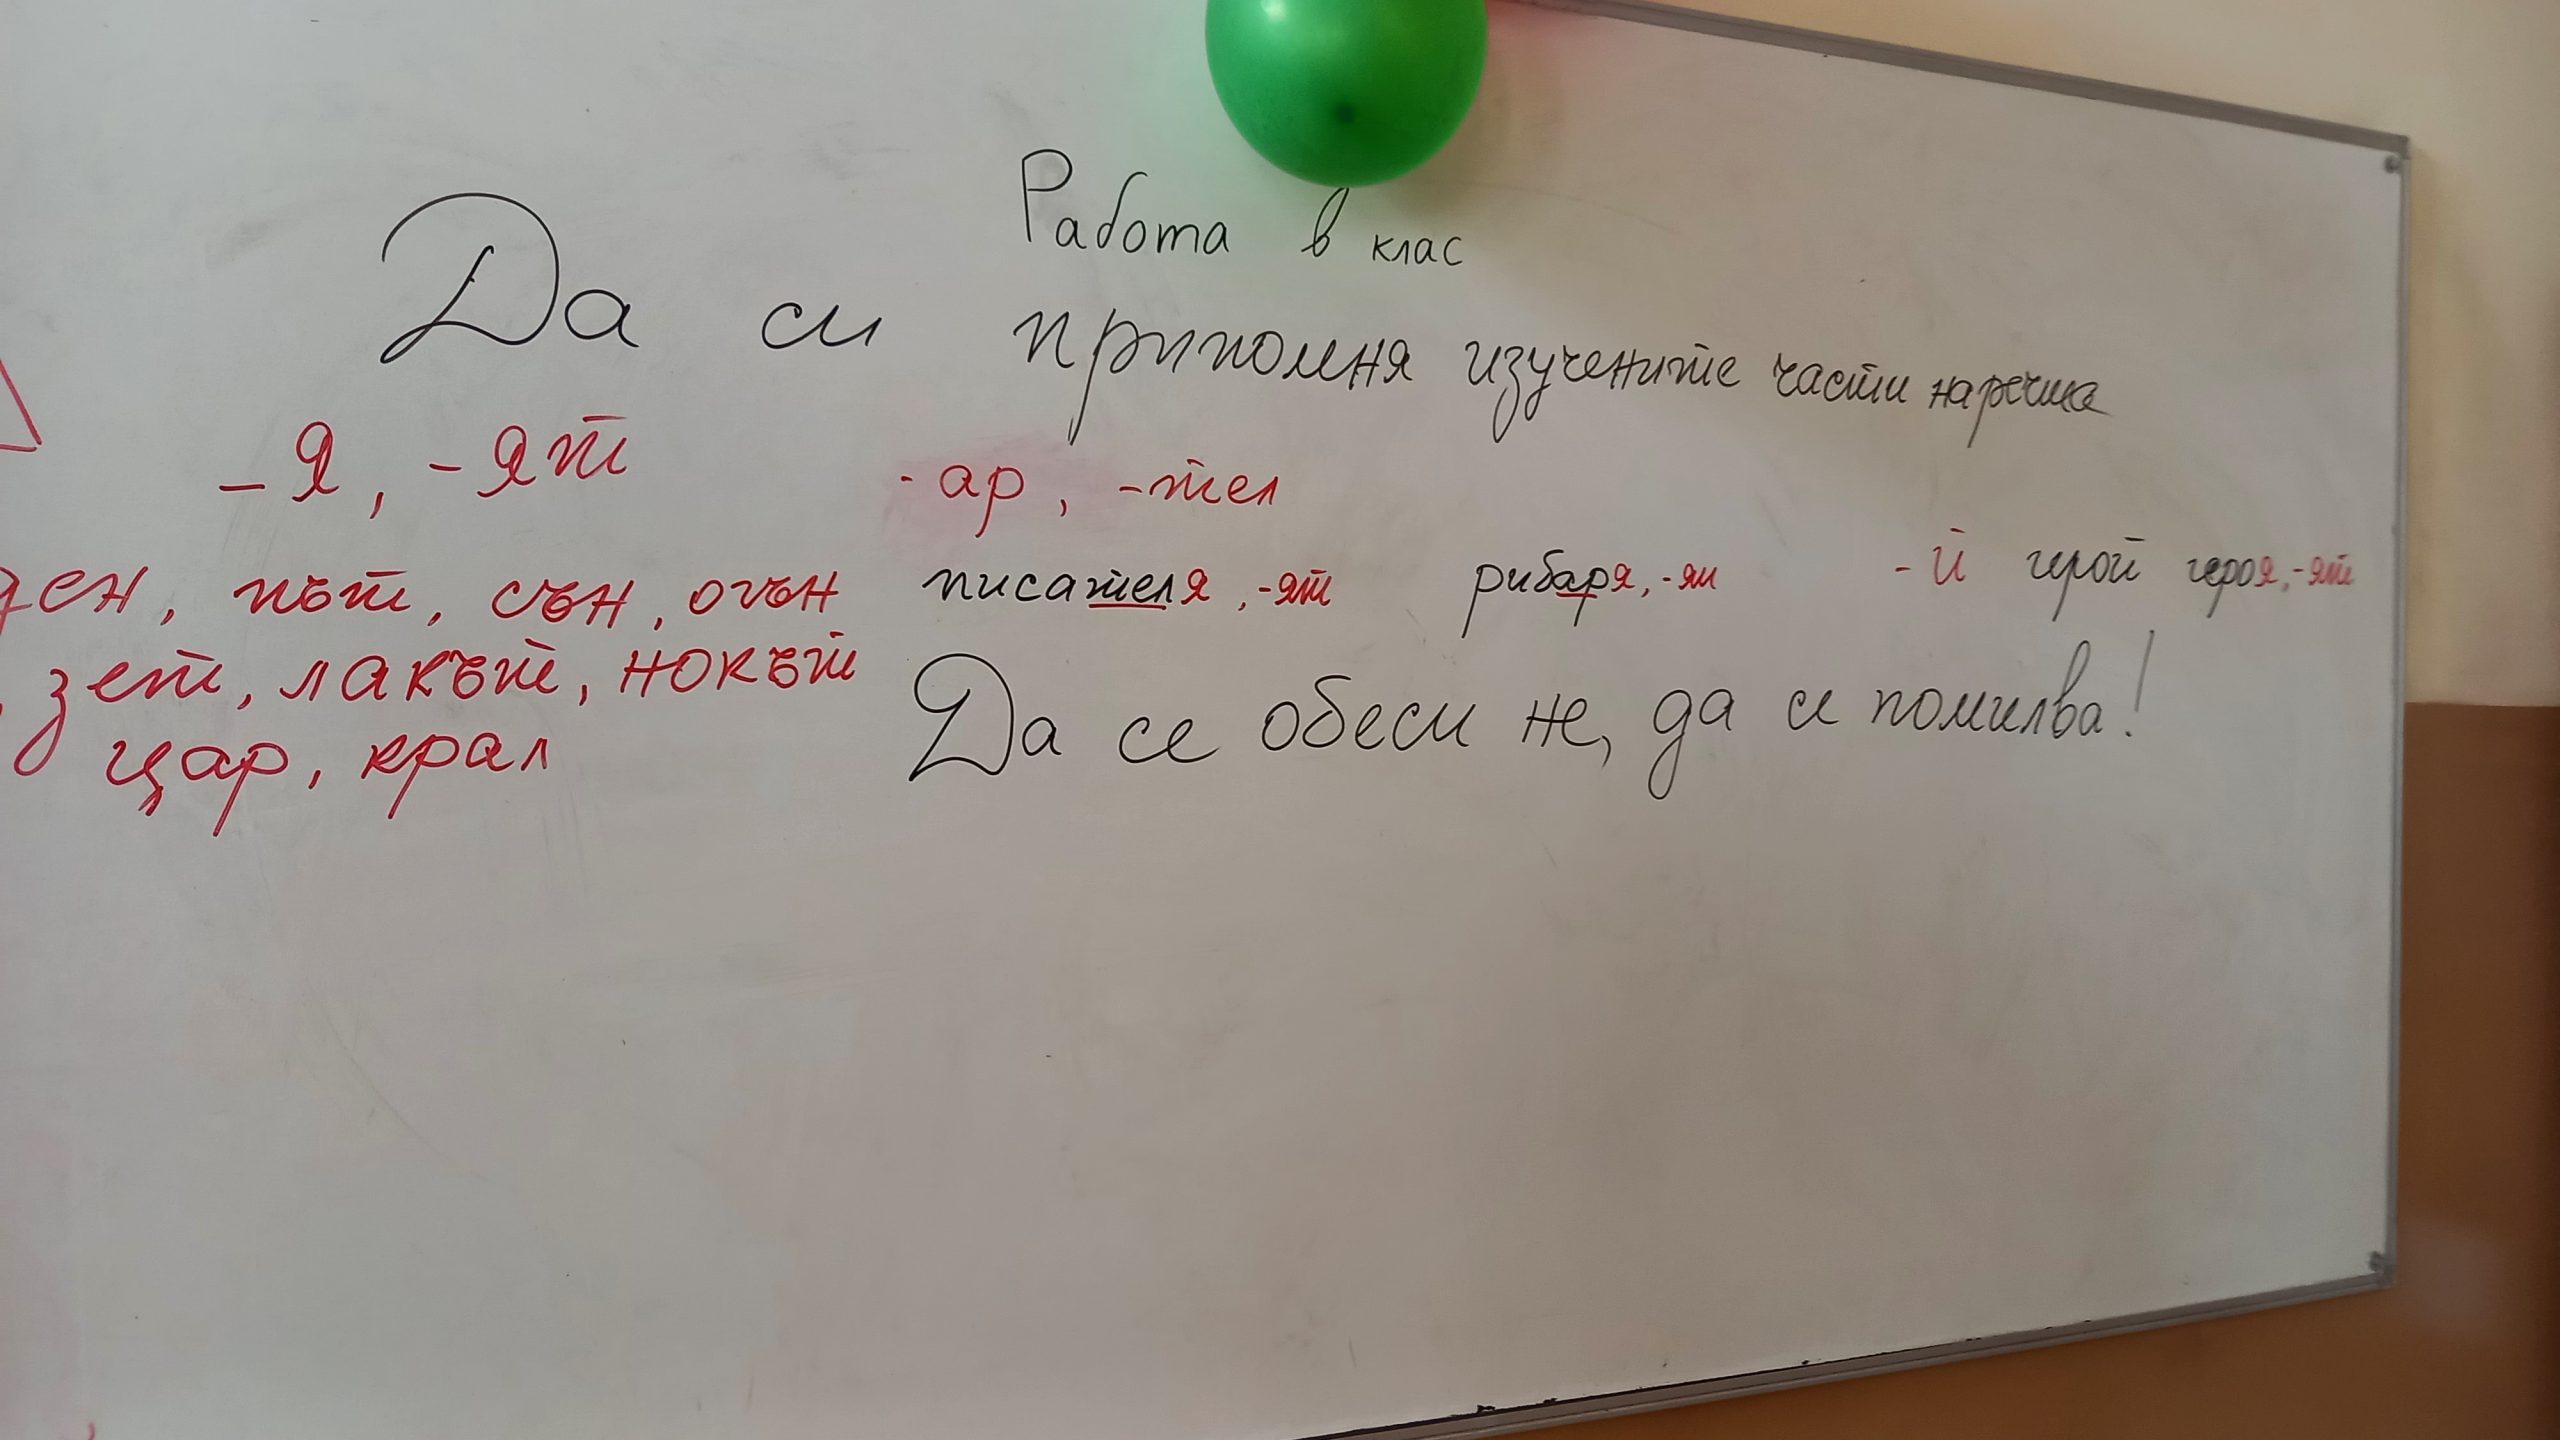 Работа в клас
Да си припомня изучените части на речта
-я, -ят -ар, -тел
ден, път, сън, огън писателя, -ят рибаря, -ят -й герой героя, -ят
зет, лакът, нокът
Да се обеси не, да се помилва!
цар, крал